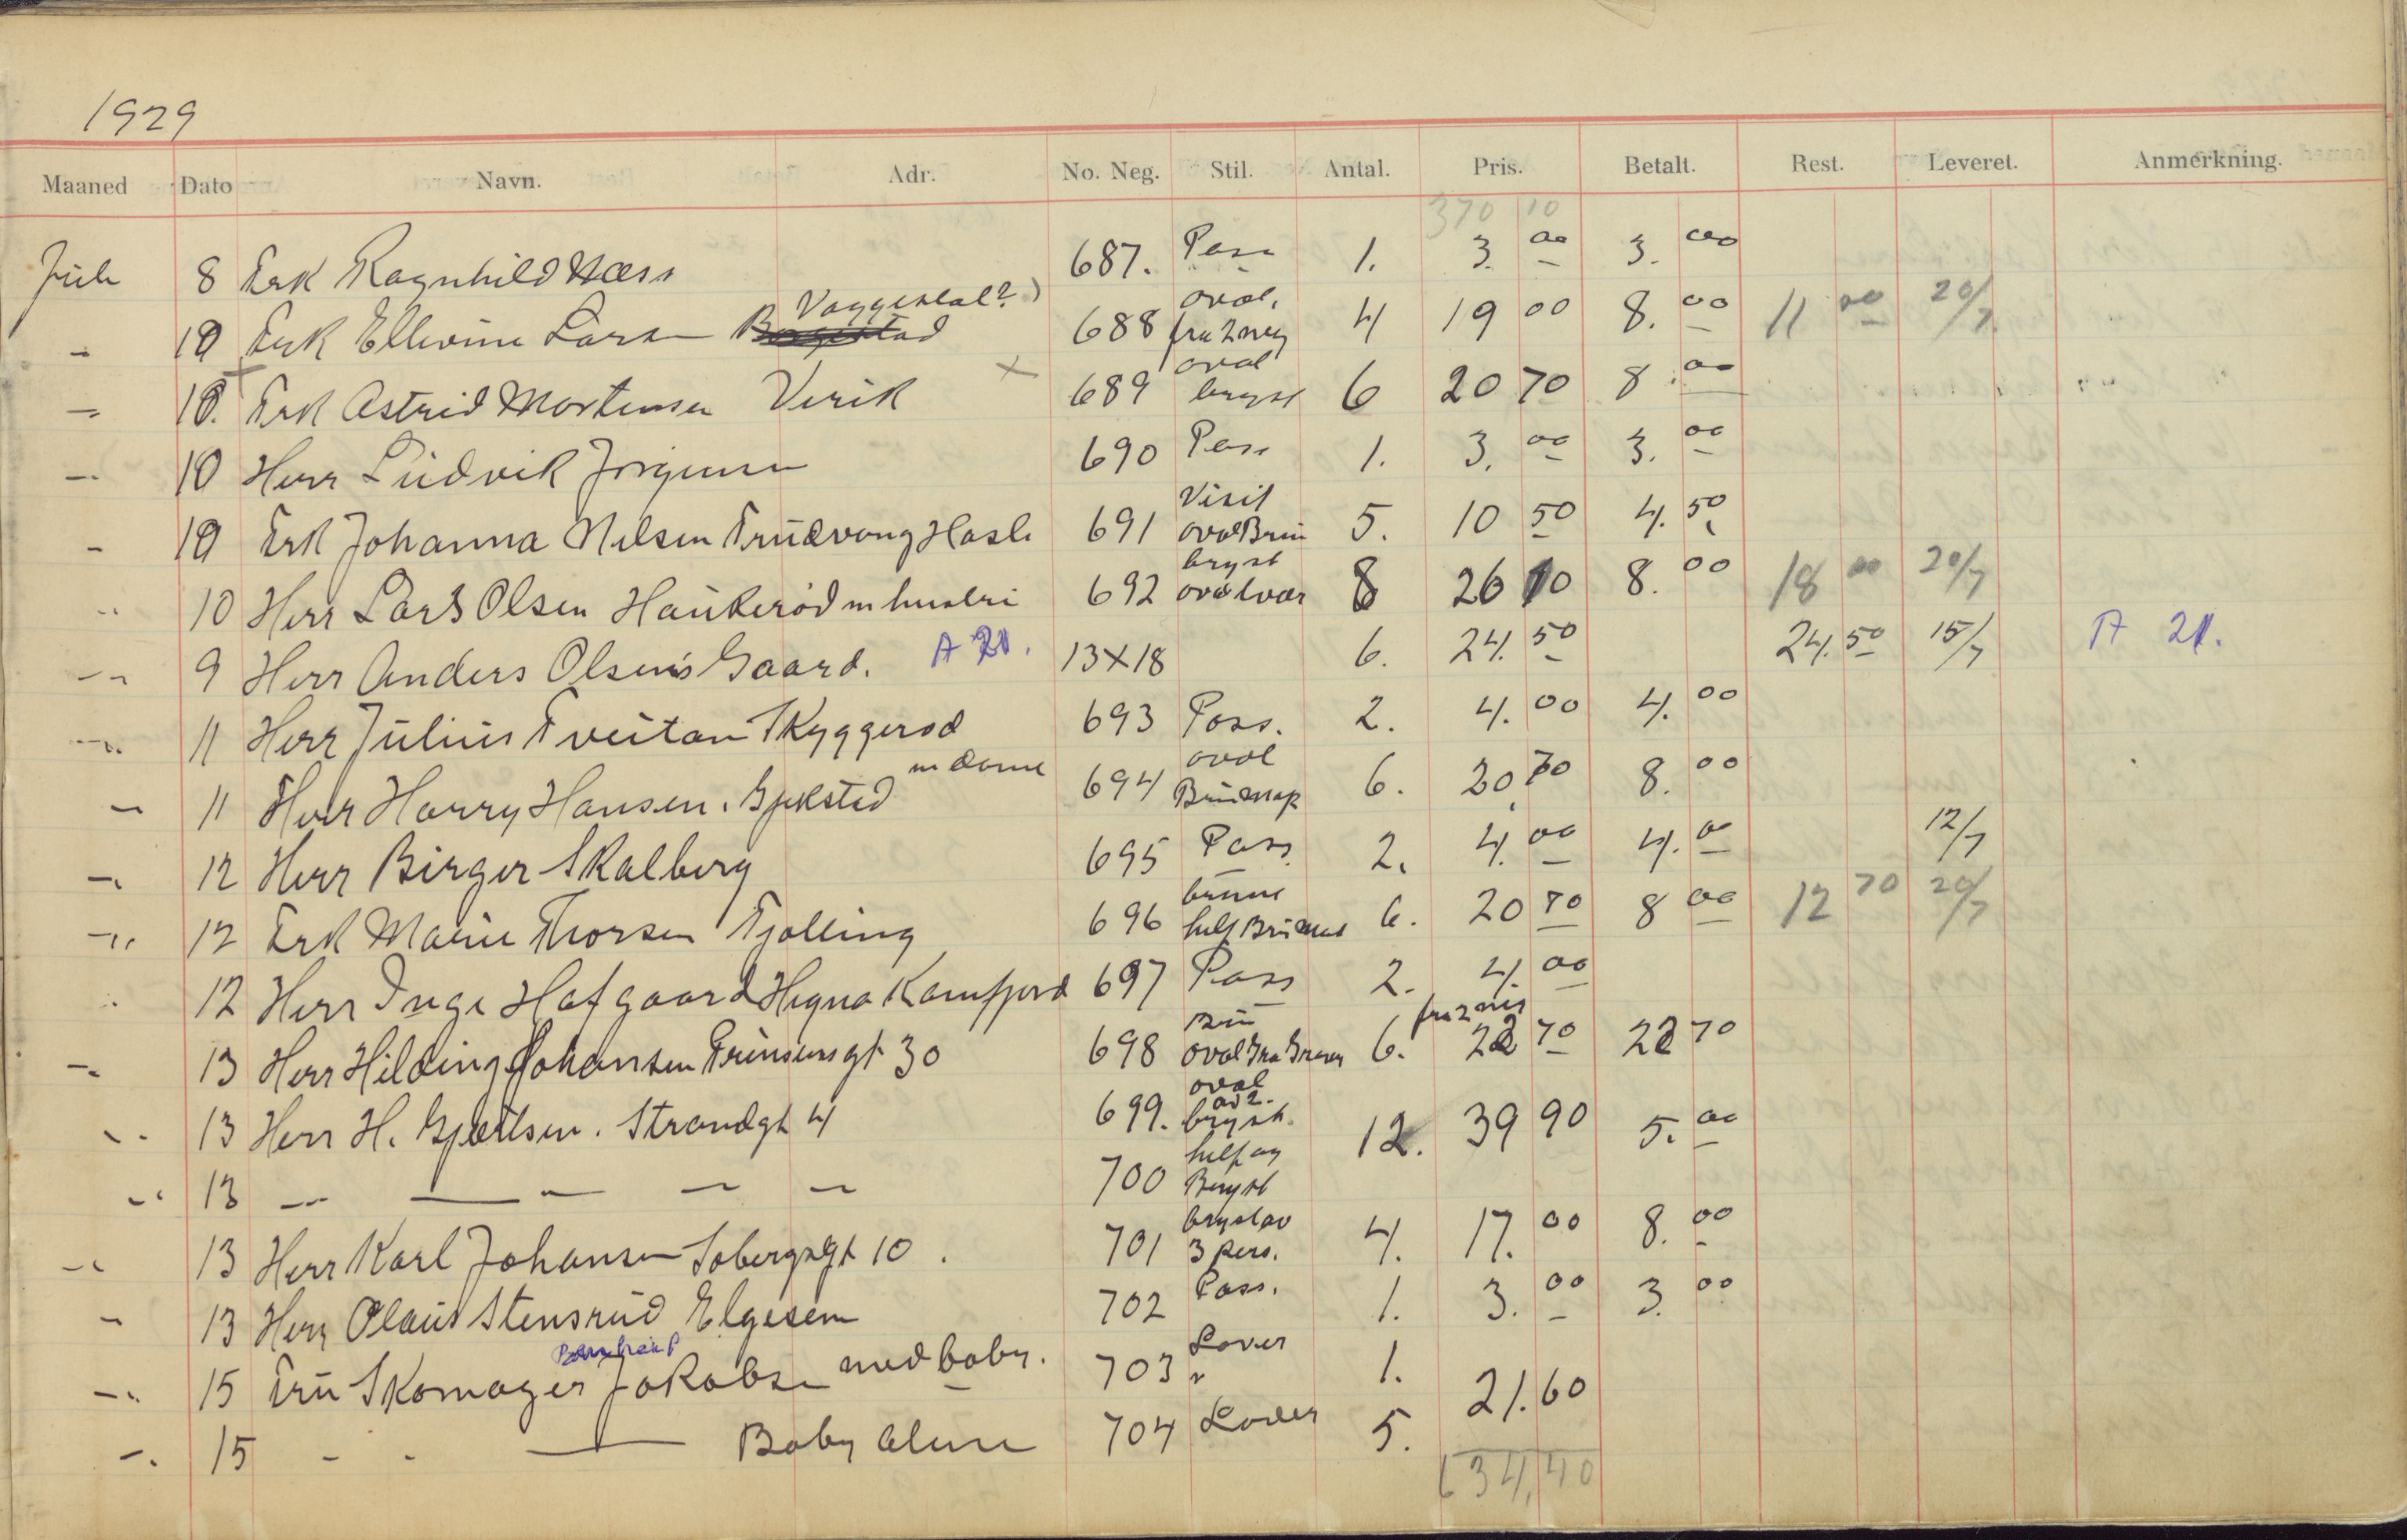 1929
Maaned Dato Navn. Adr. No. Neg. Stil. Antal. Pris. Betalt. Rest. Leveret. Anmerkning.
370 10
Juli 8 Frk Ragnhild Næss 687. Pass 1. 3. 00 3. 00
10 Frk Ellevine Larsen Vaggestal?) 688 oval. fra 2 neg 4 19 00 8. 00 11 00 20/7
10. Frk Astrid Mortensen Virik x 689 oval bryst 6 20 70 8. 00
10 Herr Ludvik Jørgensen 690 Pass 1. 3. 00 3. 00
10 Frk Johanna Nilsen Trudvang Hasle 691 Visit oval Brun 5. 10 50 4. 50
10 Herr Lars Olsen Haukerød m hustri 692 bryst oval 8 26 10 8. 00 18 00 20/7
9 Herr Anders Olsen's Gaard. A 21. 13x18 6. 24. 50 24. 50 15/7 A 21.
11 Herr Julius Tveitan Skyggerød 693 Pass. 2. 4. 00 4. 00
11 Herr Harry Hansen. Gjekstad m dame 694 oval 6. 20, 70 8. 00
12 Herr Birger Skalberg 695 Pass 2. 4. 00 4. 00 12/7
12 Frk Marie Thorsen Tjølling 696 brune 6. 20 70 8 00 12 70 20/7
12 Herr Inge Hafgaard Kamfjord 697 Pass 2. 4. 00
13 Herr Hilding Johansen Prinsensgt 30 698 Brun oval 6. 22 70 22 70
13 Herr H. Gjertsen. Strandgt 4 699. oval av 2. bryst. 12. 39 90 5. 00
13 — — — — — 700 helf og Bryst
13 Herr Karl Johansen Sobergsgt 10. 701 bryst av 3 pers. 4. 17. 00 8. 00
13 Herr Olaus Stensrud Elgesem 702 Pass. 1. 3. 00 3. 00
15 Fru Skomager Jakobsen med baby. 703 Lover 1. 21. 60
15 - - — Baby alene 704 Lover 5.
634,40